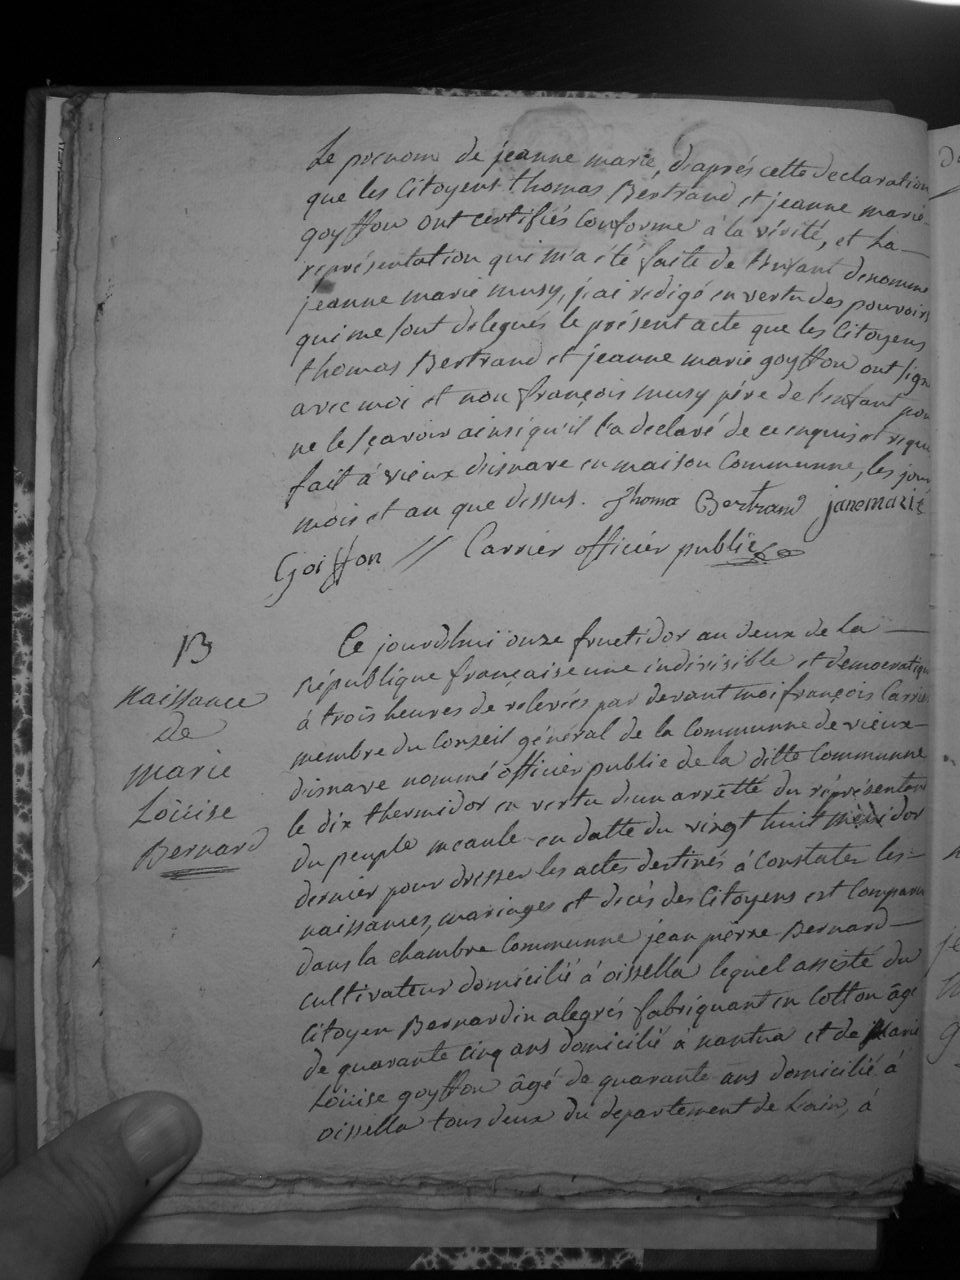 Le prenom de jeanne marie, d'aprés cette declaration
que les Citoyens thomas Bertrand et jeanne marie
goyffon ont certifiés Conforme à la vérité, et La
représentation qui m'a été faite de l'Enfant denommé
jeanne marie musy, j'ai redigé en vertu des pouvoirs
qui me sont delegués le présent acte que les Citoyens
thomas Bertrand et jeanne marie goyffon ont signé
avec moi et non françois musy pére de l'enfant pour
ne le sçavoir ainsi qu'il l'a declaré de ce enquis et requis
fait à vieux disnave en maison Communne, les jour
mois et an que dessus. Thoma Bertrand janemarie
Goiffon // Carrier officier public
B
naissance
de
marie
Loüise
Bernard
Ce jourdhui onze fructidor an deux de La
république française une indivisible et democratique
à trois heures de relevées par devant moi françois Carrier
membre du Conseil général de la Communne de vieux
disnave nommé officier public de la ditte Communne
le dix thermidor en vertu d'un arrètté du réprésentant
du peuple meaule en datte du vingt huit messidor
dernier pour dresser les actes destinés à Constater les
naissances, mariages et décés des Citoyens est Comparu
dans la chambre Communne jean pierre Bernard
cultivateur domicilié à oissella lequel assisté du
Citoyen Bernardin alegrés fabriquant en Cotton âgé
de quarante cinq ans domicilié à nantua et de Marie
Loüise goyffon âgé de quarante ans domicilié à
oissella tous deux du departement de Lain, à